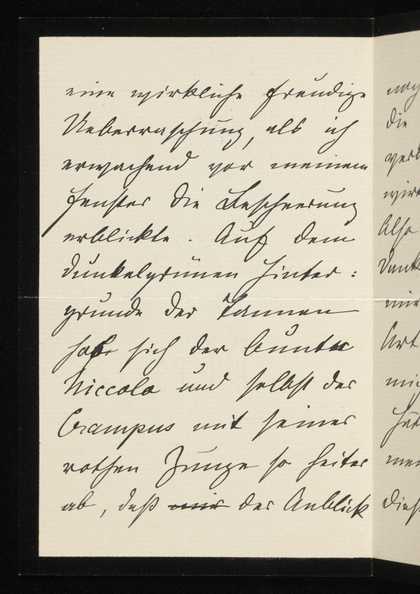 eine wirkliche freudige
Ueberraschung, als ich
erwachend vor meinem
Fenster die Bescheerung
erblickte. Auf dem
dunkelgrünen Hinter:
grunde der Tannen
hob sich der bunte
Niccolo und selbst der
Crampus mit seiner
rothen Zunge so heiter
ab, daß mir der Anblick
die
Also
Dank
mir
Art